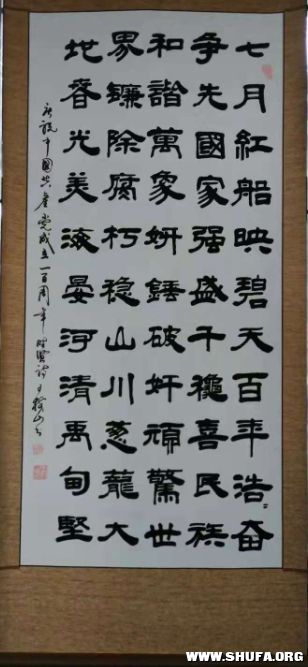 七月紅船映碧天百年浩〻奮
争先國家强盛千龝喜民族
和諧萬象妍錘破奸頑驚世
界鐮除腐朽稳山川葱蘢大
地春光美海晏河清禹甸堅
庆祝中國共產党成立一百周年時賢詩
WWW.SHUFA.ORG